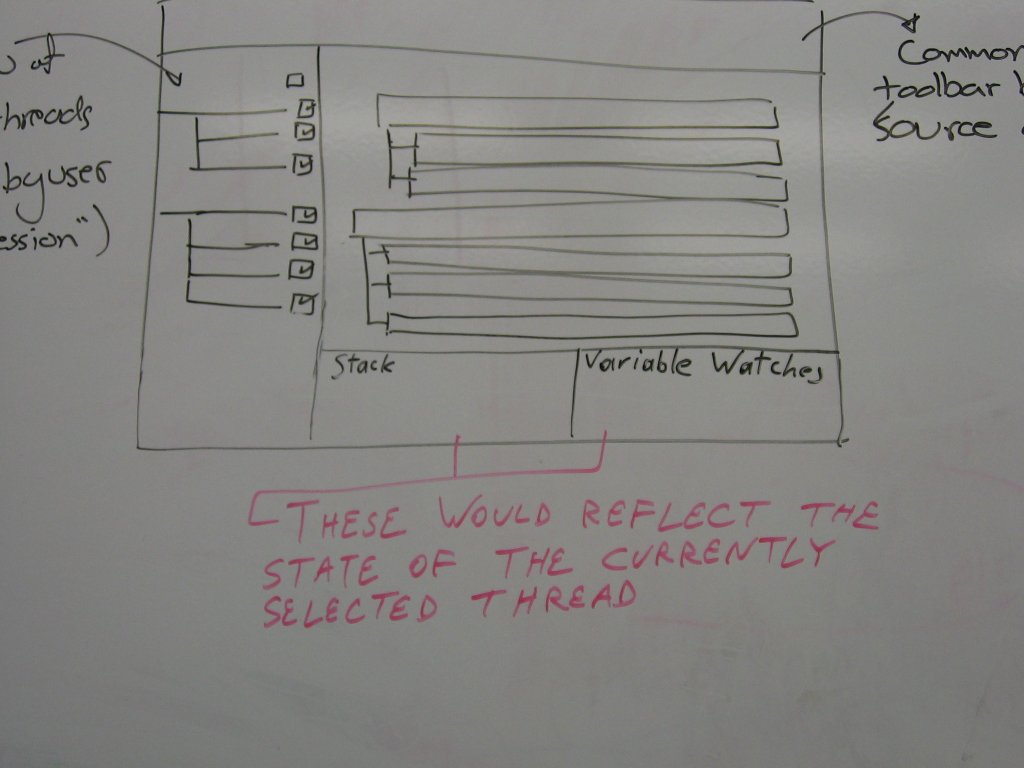 of
threads
by user
ession")
Common
toolbar
Source
Stack
Variable Watches
THESE WOULD REFLECT THE
STATE OF THE CURRENTLY
SELECTED THREAD